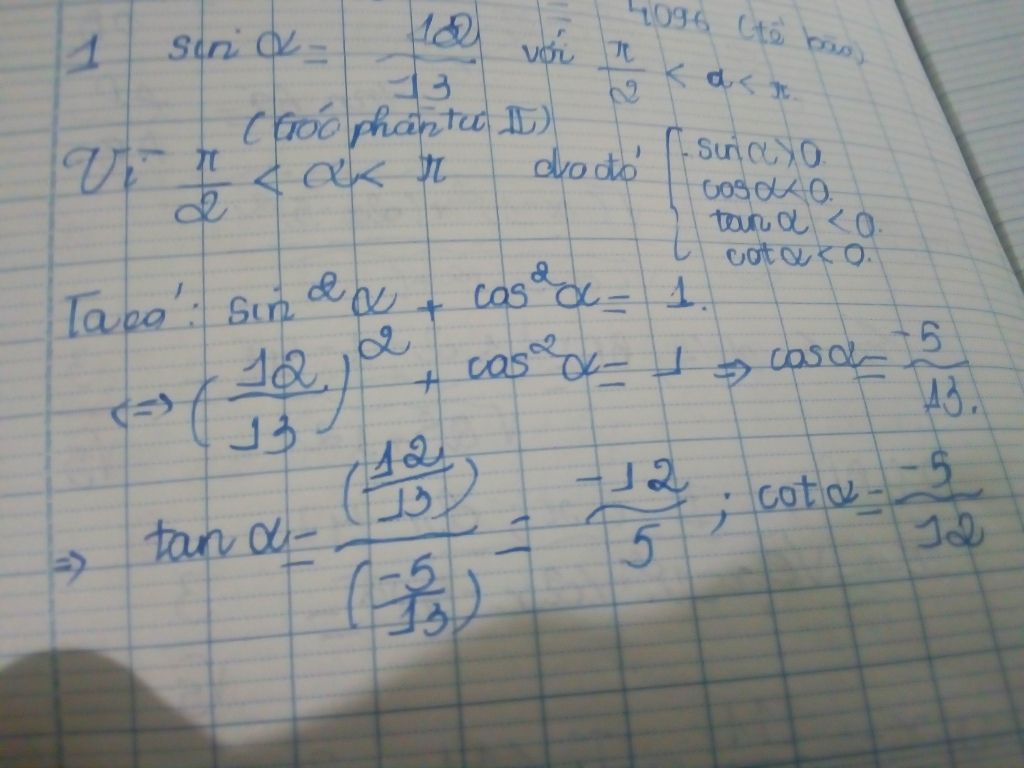 = 4096 (tế bào)
1 sin α = 12/13 với π/2 < α < π.
(Góc phần tư II)
Vì π/2 < α < π do đó { sin α > 0.
cos α < 0.
tan α < 0.
cot α < 0.
Ta có: sin²α + cos²α = 1.
<=> (12/13)² + cos²α = 1 => cos α = -5/13.
=> tan α = (12/13)/(-5/13) = -12/5 ; cot α = -5/12